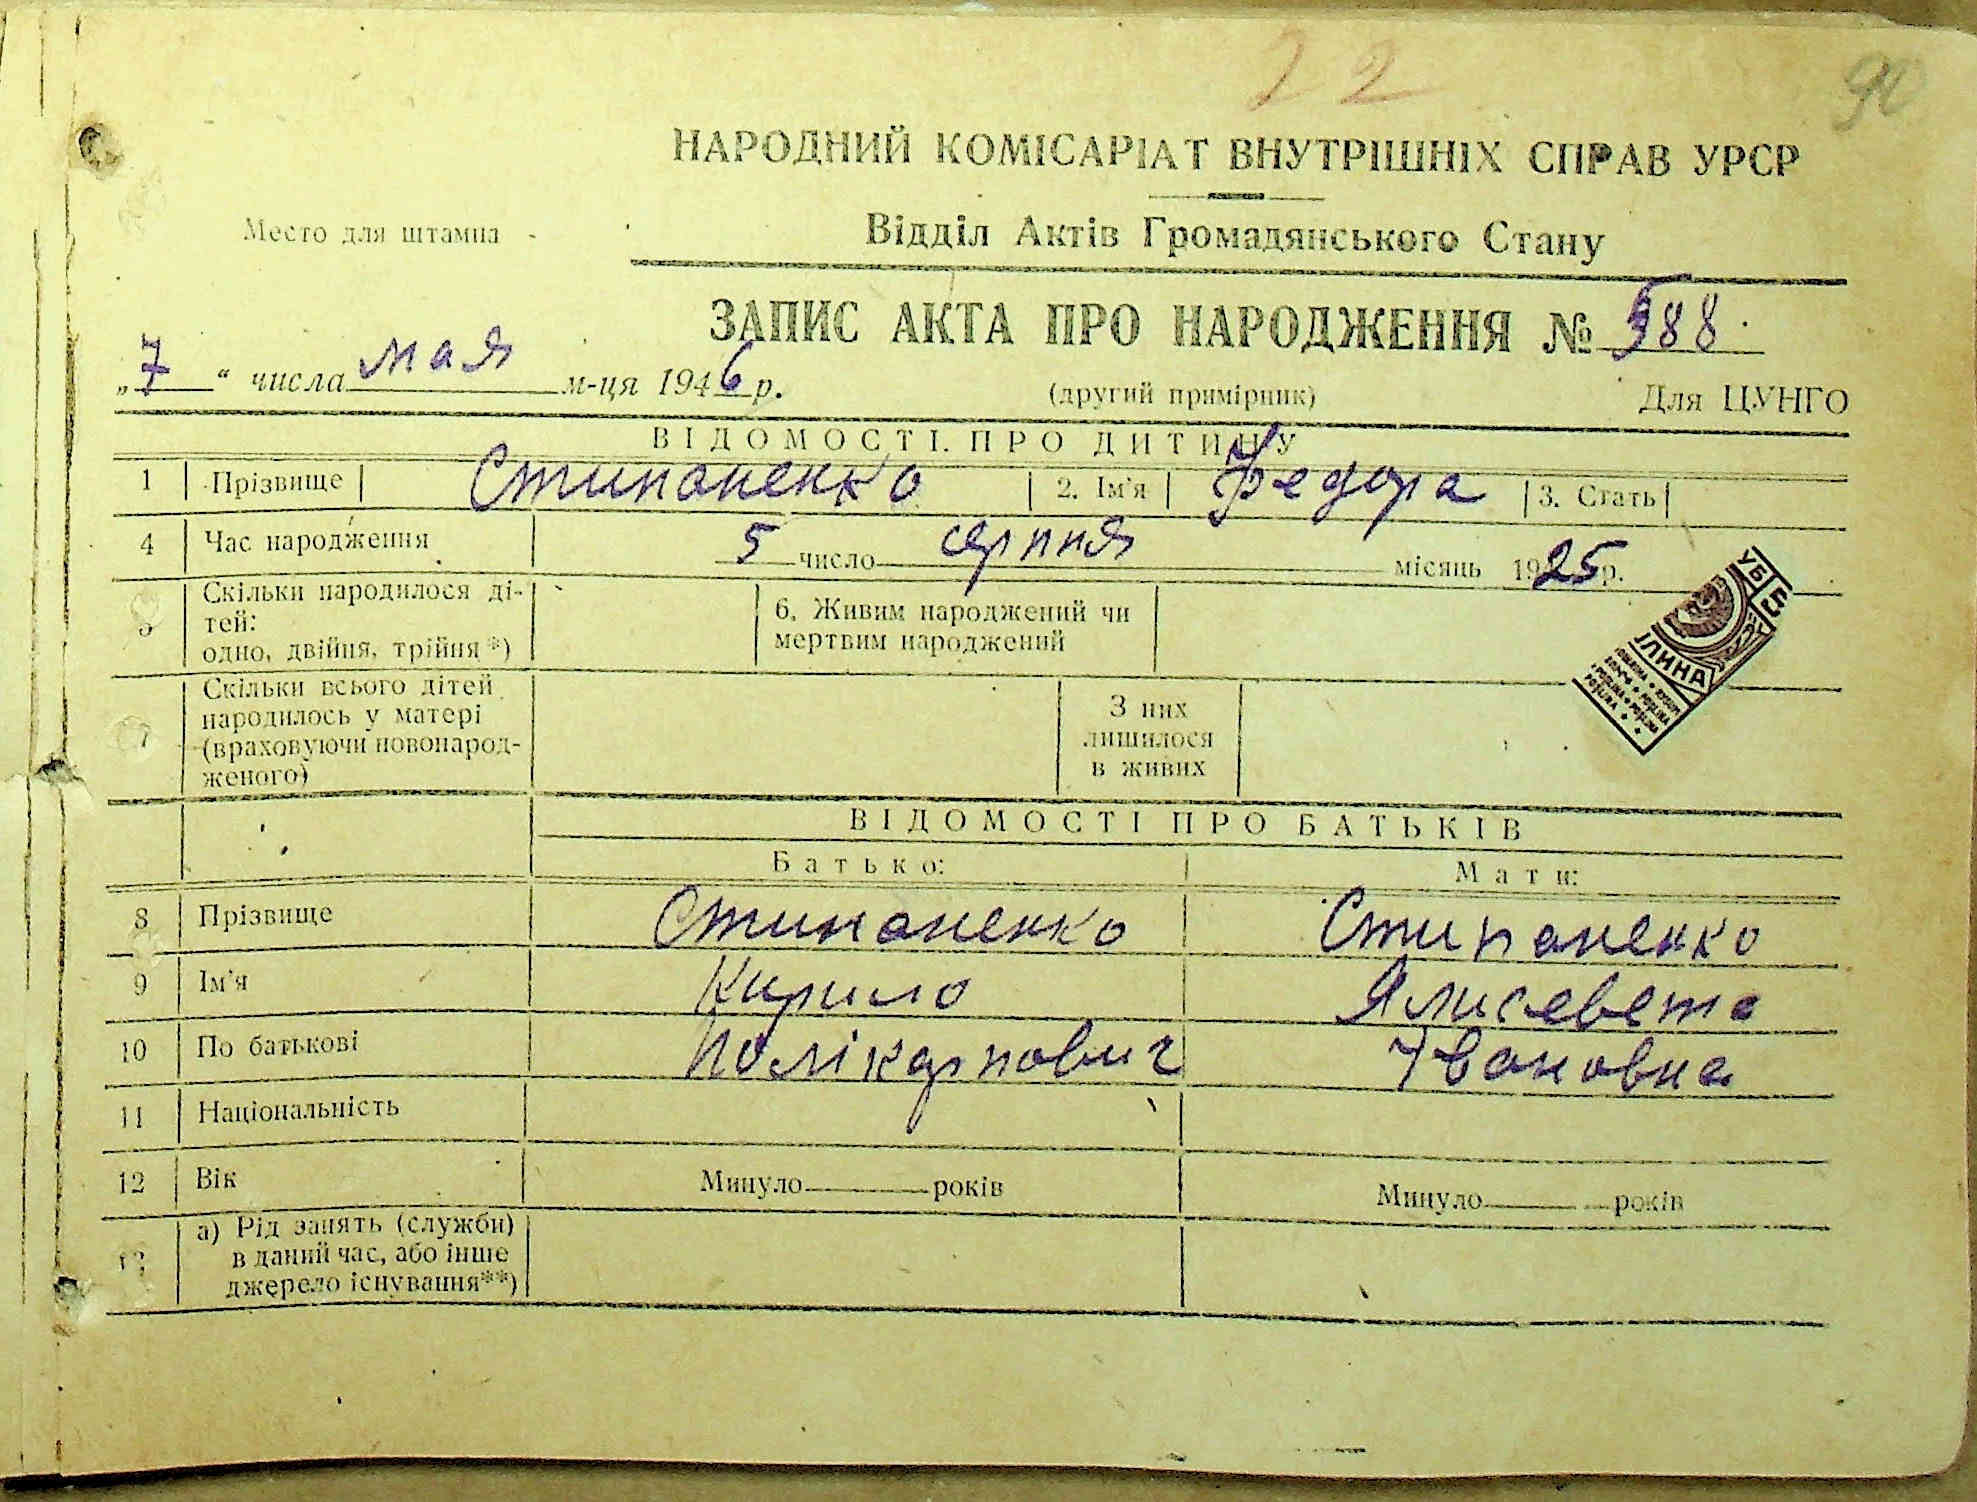 22
90
НАРОДНИЙ КОМІСАРІАТ ВНУТРІШНІХ СПРАВ УРСР
Место для штампа
Відділ Актів Громадянського Стану
ЗАПИС АКТА ПРО НАРОДЖЕННЯ № 588
„7“ числа мая м-ця 1946 р.
(другий примірник) Для ЦУНГО
ВІДОМОСТІ ПРО ДИТИНУ
1 Прізвище Стипаненко 2. Ім'я Федора 3. Стать
4 Час народження 5 число серпня місяць 1925 р.
5 Скільки народилося ді-
тей:
одно, двійня, трійня*)
6. Живим народжений чи
мертвим народжений
УБ 5
ЛИНА
7 Скільки всього дітей
народилось у матері
(враховуючи новонарод-
женого)
З них
лишилося
в живих
ВІДОМОСТІ ПРО БАТЬКІВ
Батько: Мати:
8 Прізвище Стипаненко Стипаненко
9 Ім'я Кирило Ялисевета
10 По батькові Полікарпович Івановна
11 Національність
12 Вік Минуло років Минуло років
13 а) Рід занять (служби)
в даний час, або інше
джерело існування**)